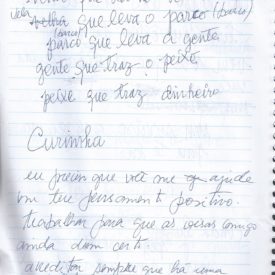 vela que leva o parco (barco)
(barco)
parco que leva a gente
gente que traz o peixe
peixe que traz dinheiro
Curimba
eu preciso que você me ajude
um teu pensamento positivo.
trabalhar para que as coisas comigo
ainda dêem certo.
acreditar sempre que há uma